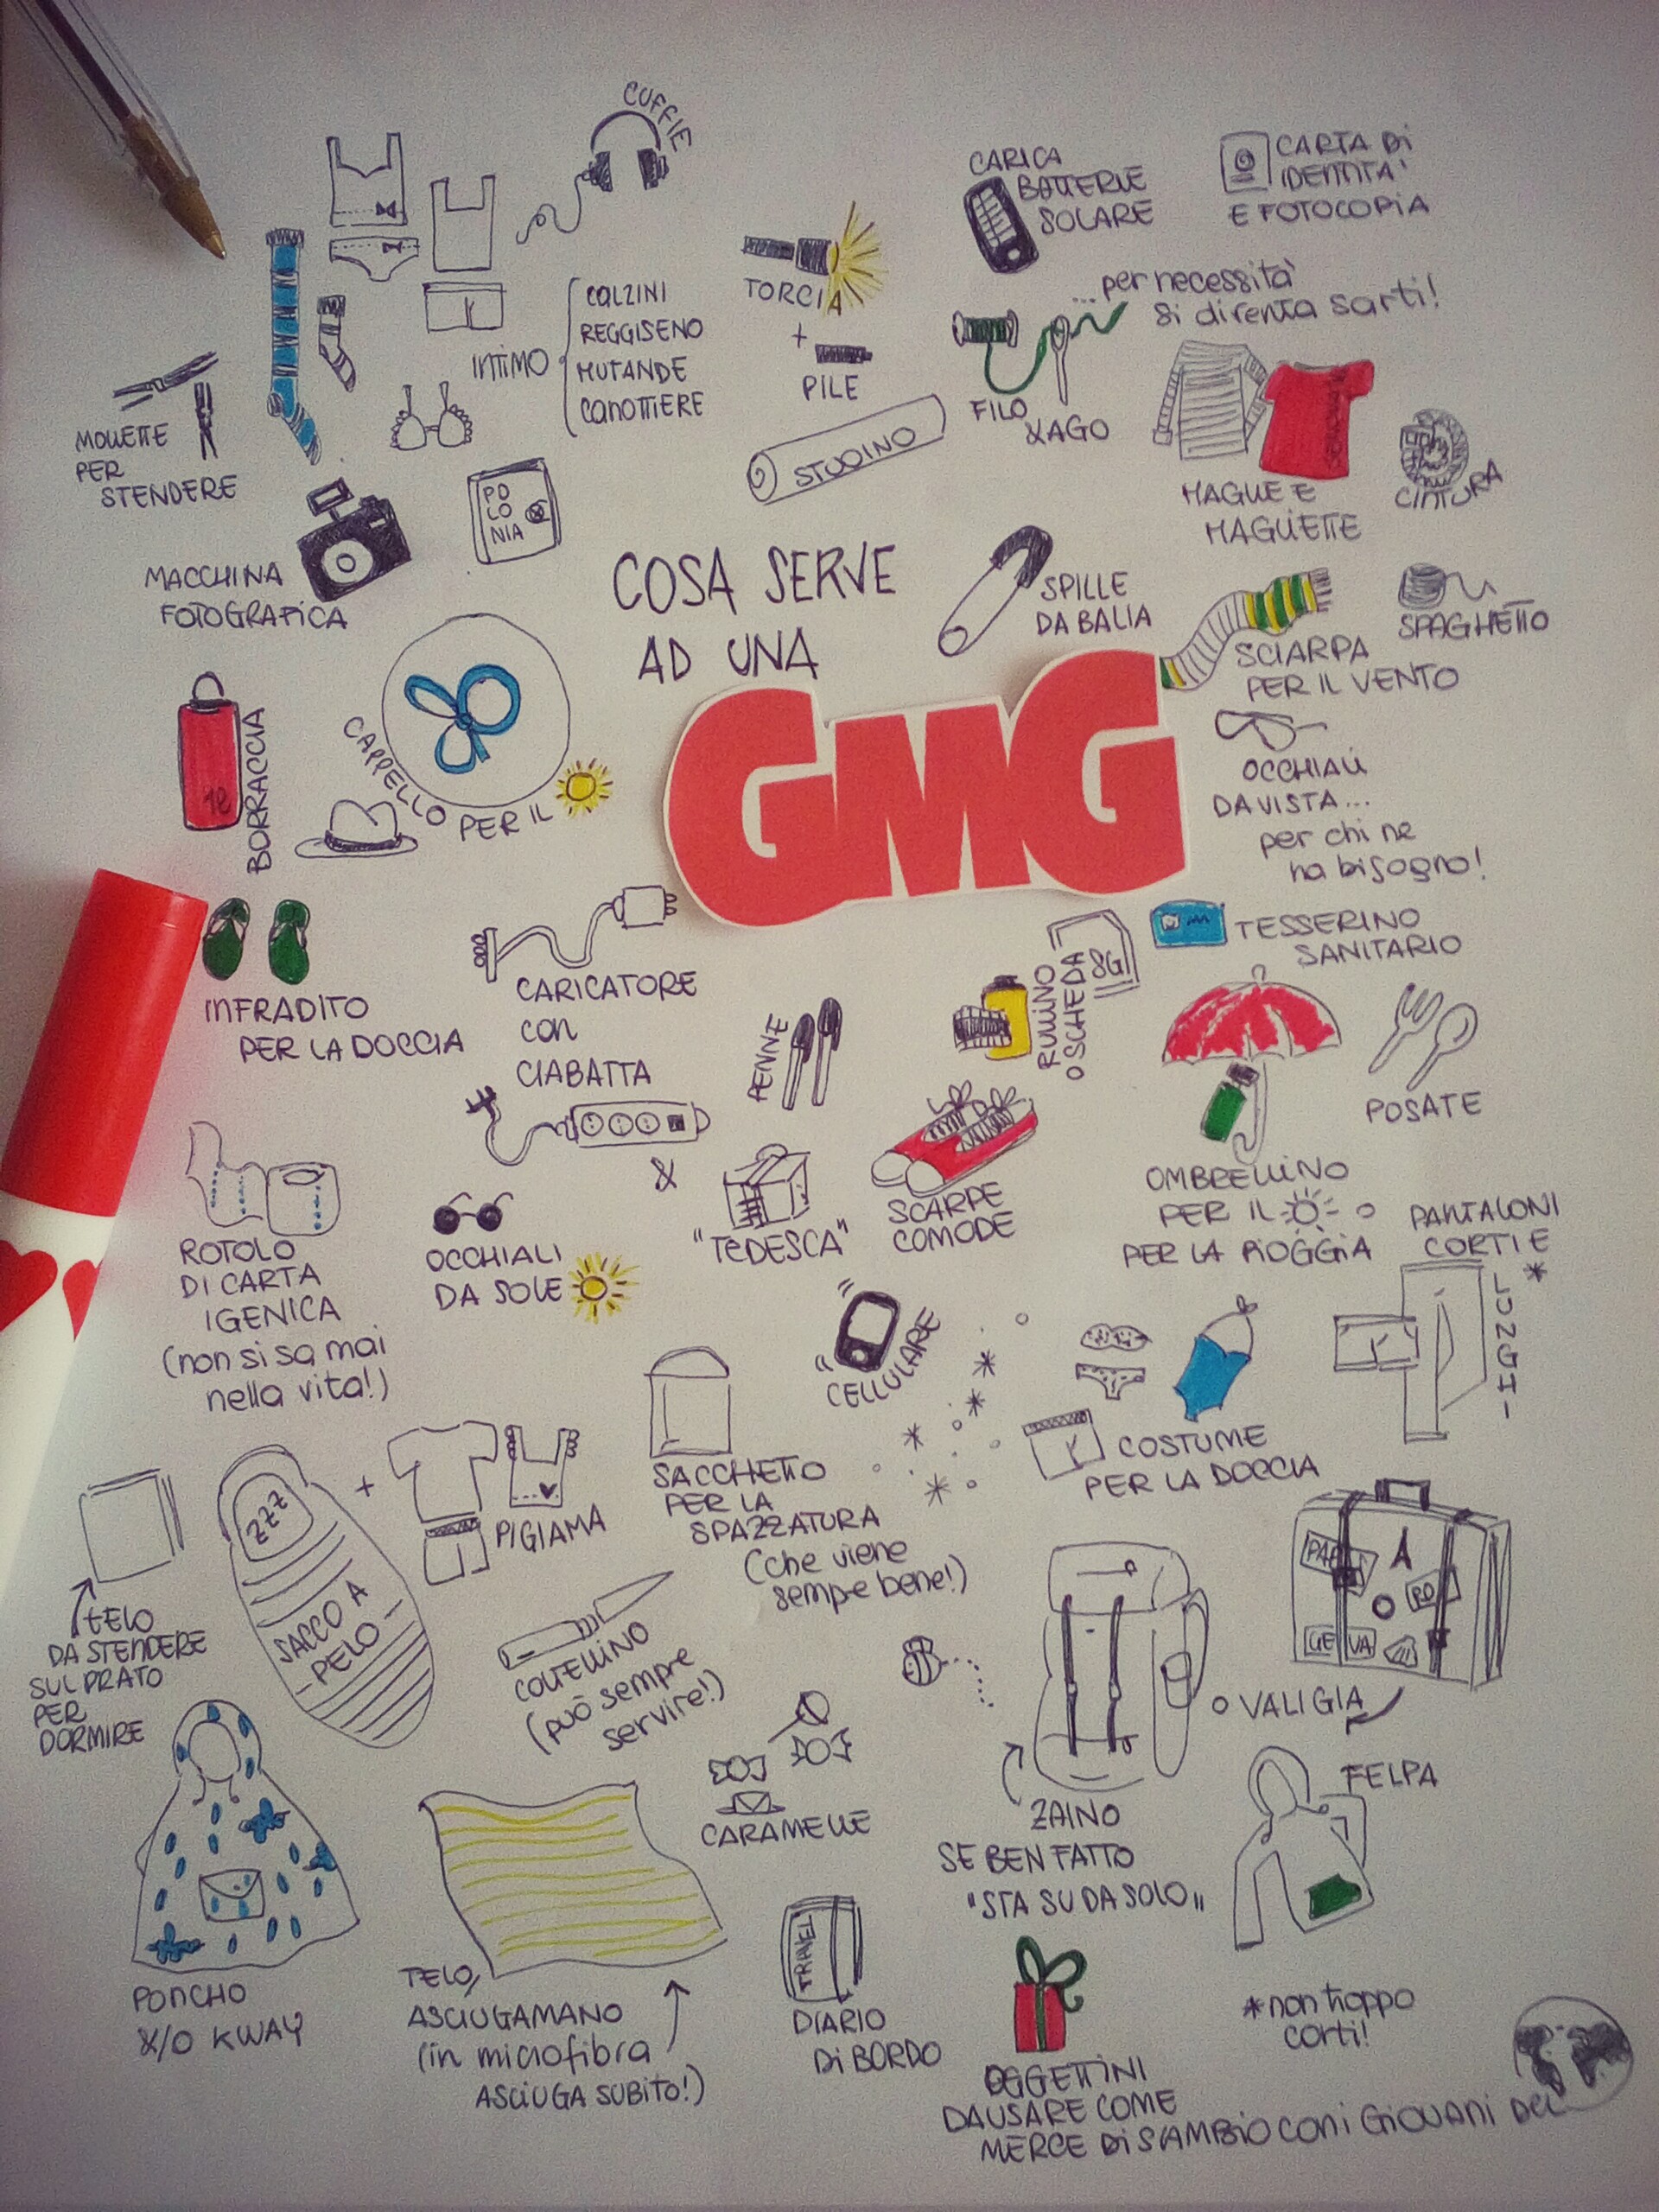 COSA SERVE
AD UNA
GMG
CUFFIE
INTIMO
CALZINI
REGGISENO
MUTANDE
CANOTTIERE
TORCIA
+
PILE
CARICA
BATTERIE
SOLARE
CARTA DI
IDENTITA'
E FOTOCOPIA
...per necessità
si diventa sarti!
FILO
& AGO
MOLLETTE
PER
STENDERE
STUOINO
MAGLIE E
MAGLIETTE
CINTURA
MACCHINA
FOTOGRAFICA
PO
LO
NIA
SPILLE
DA BALIA
SCIARPA
PER IL VENTO
SPAGHETTO
BORRACCIA
CAPPELLO PER IL
OCCHIALI
DA VISTA...
per chi ne
ha bisogno!
INFRADITO
PER LA DOCCIA
CARICATORE
con
CIABATTA
&
"TEDESCA"
PENNE
RULLINO
O SCHEDA
8G
TESSERINO
SANITARIO
POSATE
SCARPE
COMODE
OMBRELLINO
PER IL O
PER LA PIOGGIA
PANTALONI
CORTI E
LUNGHI
*
ROTOLO
DI CARTA
IGENICA
(non si sa mai
nella vita!)
OCCHIALI
DA SOLE
CELLULARE
COSTUME
PER LA DOCCIA
SACCHETTO
PER LA
SPAZZATURA
(che viene
sempre bene!)
+
PIGIAMA
ZZZ
SACCO A
PELO
TELO
DA STENDERE
SUL PRATO
PER
DORMIRE
COLTELLINO
(può sempre
servire!)
GE VA
O VALIGIA
ZAINO
SE BEN FATTO
"STA SU DA SOLO"
FELPA
CARAMELLE
PONCHO
&/O KWAY
TELO,
ASCIUGAMANO
(in microfibra
ASCIUGA SUBITO!)
TRAVEL
DIARIO
DI BORDO
*non troppo
corti!
OGGETTINI
DA USARE COME
MERCE DI SCAMBIO CON I GIOVANI DEL